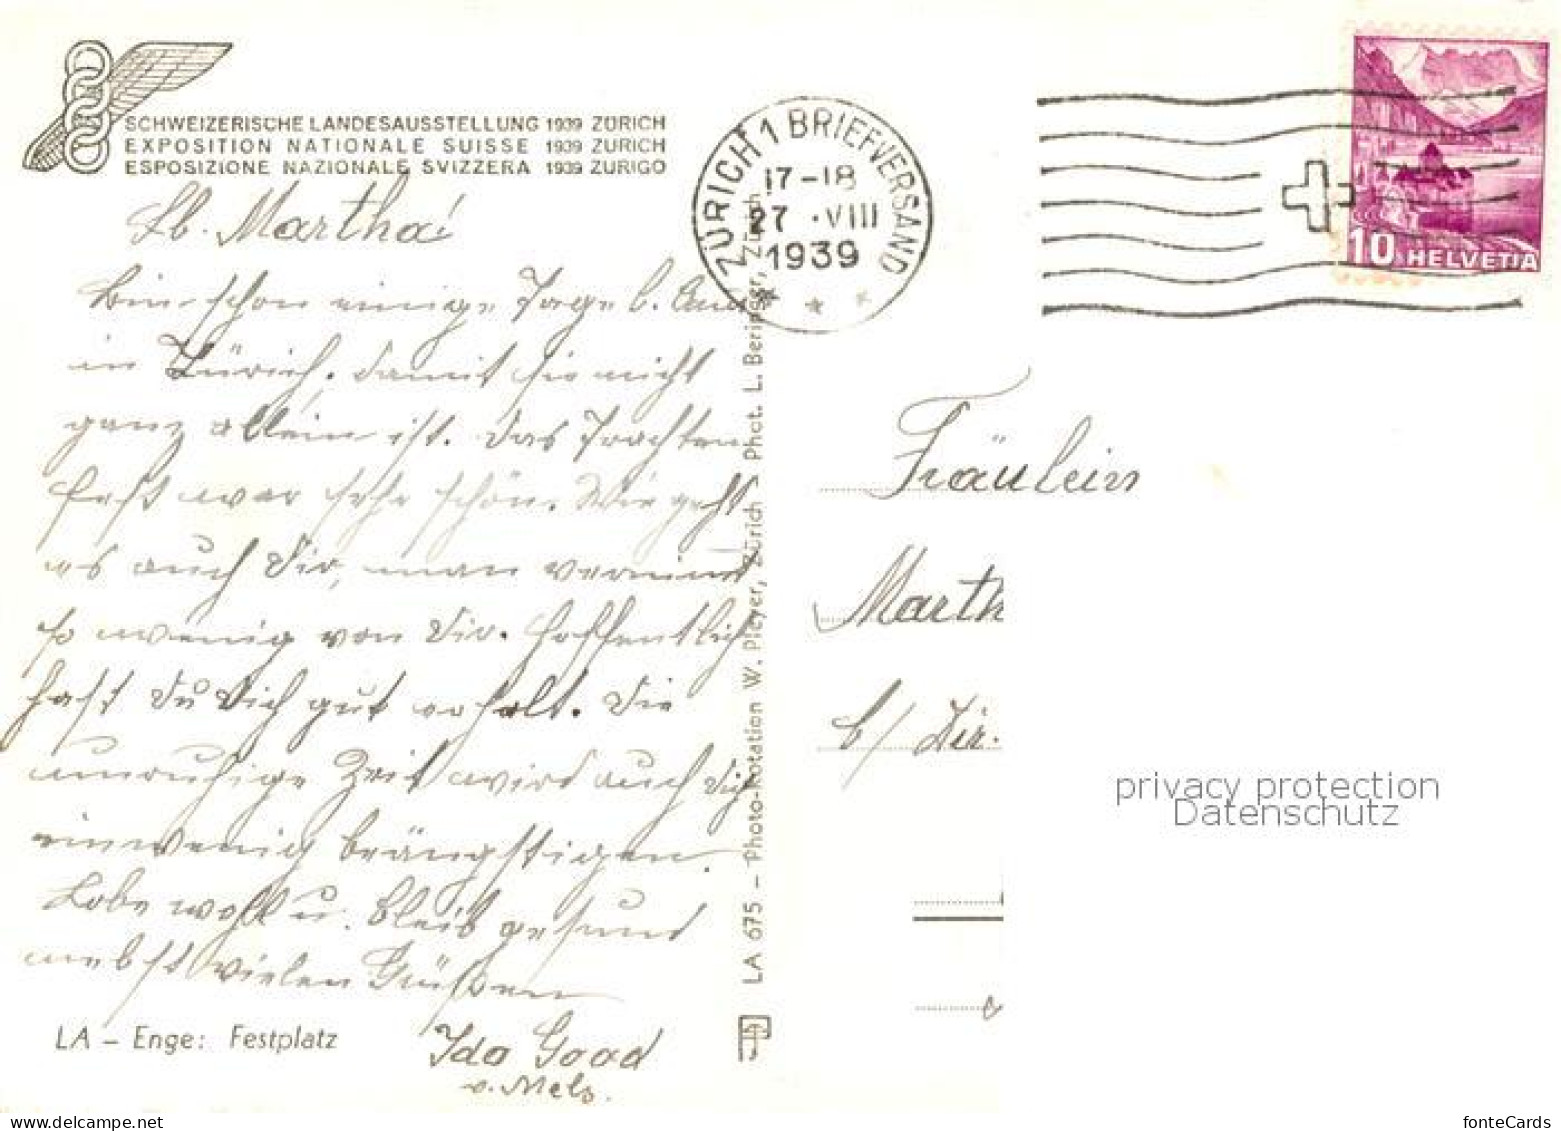 SCHWEIZERISCHE LANDESAUSSTELLUNG 1939 ZÜRICH
EXPOSITION NATIONALE SUISSE 1939 ZURICH
ESPOSIZIONE NAZIONALE SVIZZERA 1939 ZURIGO
Lb. Martha!
Bin schon einige Tage b.
in Zürich, damit sie nicht
ganz allein ist. Das Trachten
fest war sehr schön. Wie geht
es auch Dir, man vernimmt
so wenig von Dir. Hoffentlich
hast Du Dich gut erholt. Die
unruhige Zeit wird auch Dich
ein wenig beängstigen.
Lebe wohl u. bleib gesund
nebst vielen Grüßen
Ida Good
v. Mels.
LA – Enge: Festplatz
LA 675 – Photo-Rotation W. Pleyer, Zürich Phot. L. Beringer, Zürich
ZÜRICH 1 BRIEFVERSAND
17-18
27.VIII
1939
10 HELVETIA
Fräulein
Marth
b/ Dir.
privacy protection
Datenschutz
www.delcampe.net
fonteCards